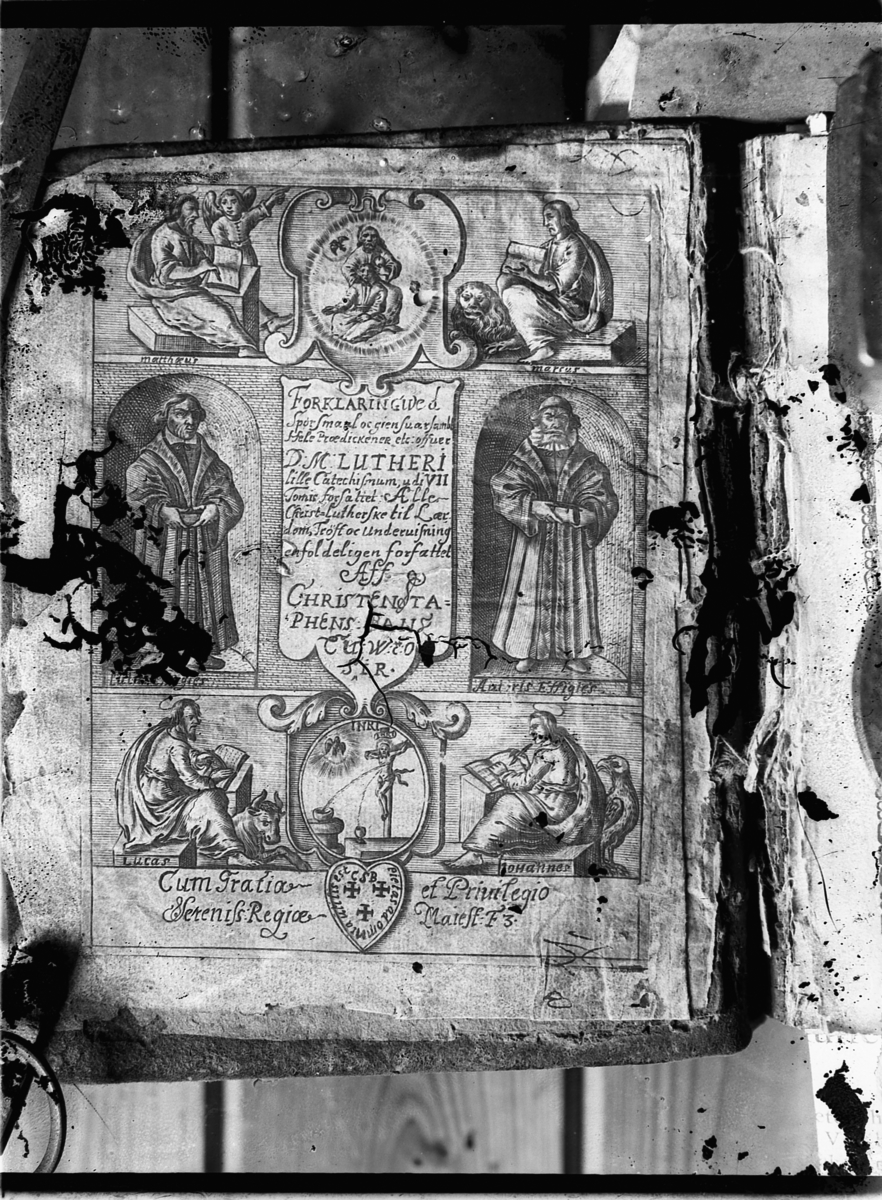 matthæus
marcus
FORKLARING wed
Spörsmaal oc giensuar samb
Hele Prædickener etc. offuer
D. M. LUTHERI
lille Catechismum, udi VII
Tomis forfattet Alle
Christ=Lutherske til Lær
dom, Tröst oc Underuisning
enfoldeligen forfattet
Aff
CHRISTEN STA=
PHENS
Effigies
Lucas
INRI
Johannes
Cum Gratia et Priuilegio
Sereniss: Regiæ Maiest: F3.
CSB
pietas ad omnia utilis est